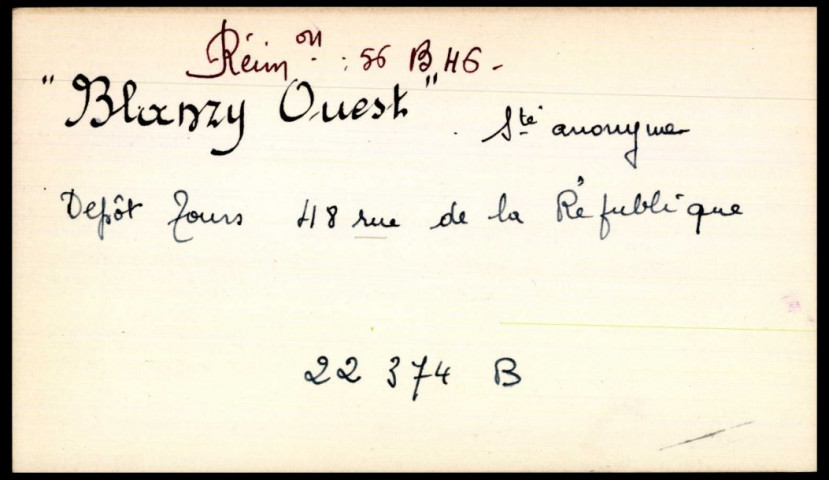 Réim on : 56 B 46 -
"Blanzy Ouest" . Sté anonyme
Depôt Tours 48 rue de la République
22 374 B